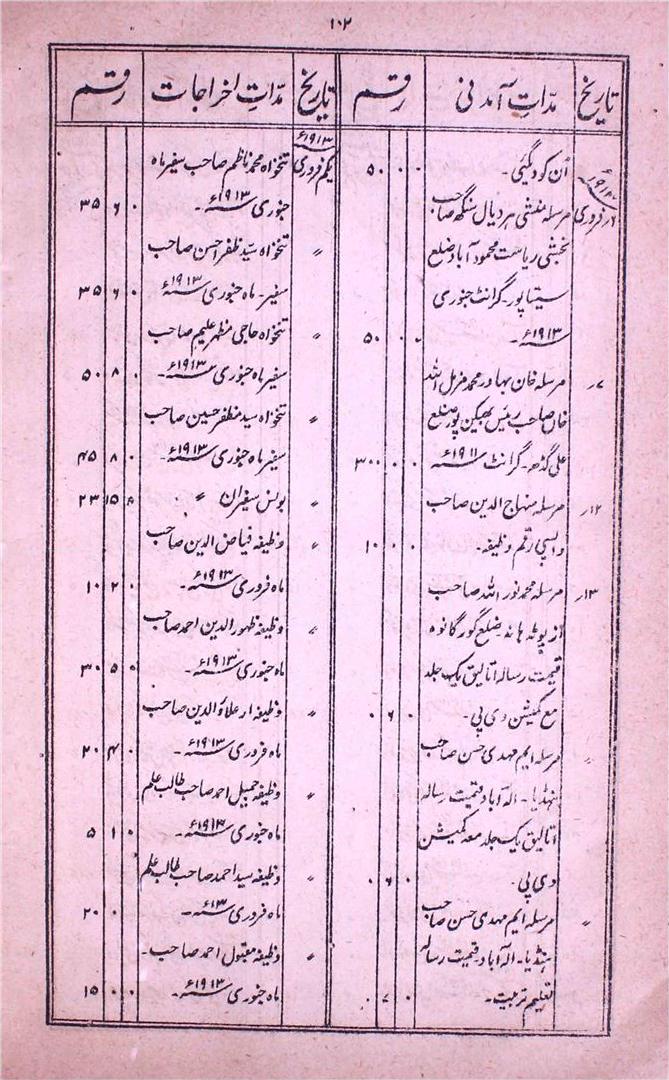 ۱۰۲
تاریخ مدّاتِ آمدنی رقم
اُن کو دیگئی۔ ۵۰ ۰ ۰
۱۹۱۳ء
۶؍فروری مرسلہ منشی ہردیال سنگھ صاحب
بخشی ریاست محمود آباد ضلع
سیتاپور۔ گرانٹ جنوری
۱۹۱۳ء۔ ۵۰ ۰ ۰
۷؍ مرسلہ خان بہادر محمد مزمل اللہ
خاں صاحب رئیس بھیکن پور ضلع
علی گڈھ۔ گرانٹ ۱۹۱۱ء ۳۰۰ ۰ ۰
۱۲؍ مرسلہ منہاج الدین صاحب
واپسی رقم وظیفہ۔ ۱۰ ۰ ۰
۱۳؍ مرسلہ محمد نور اللہ صاحب
از پوٹہ ہانہ ضلع گورگانوہ
قیمت رسالہ اتالیق یک جلد
مع کمیشن وی پی۔ ۰ ۶ ۰
〃 مرسلہ ایم مہدی حسن صاحب
ہنڈیا۔ الہ آباد قیمت رسالہ
اتالیق یک جلد معہ کمیشن
وی پی۔ ۰ ۶ ۰
〃 مرسلہ ایم مہدی حسن صاحب
ہنڈیا۔ الہ آباد قیمت رسالہ
تعلیم تربیت۔ ۰ ۷ ۰
تاریخ مدّاتِ اخراجات رقم
۱۹۱۳ء
یکم فروری تنخواہ محمد ناظم صاحب سفیر ماہ
جنوری ۱۹۱۳ء۔ ۳۵ ۶ ۰
〃 تنخواہ سیّد ظفر احسن صاحب
سفیر۔ ماہ جنوری ۱۹۱۳ء ۳۵ ۶ ۰
〃 تنخواہ حاجی مظہر علیم صاحب
سفیر ماہ جنوری ۱۹۱۳ء۔ ۵۰ ۸ ۰
〃 تنخواہ سید مظفر حسین صاحب
سفیر ماہ جنوری ۱۹۱۳ء۔ ۴۵ ۸ ۰
〃 بونس سفیران 〃 ۲۳ ۱۵
〃 وظیفہ فیاض الدین صاحب
ماہ فروری ۱۹۱۳ء۔ ۱۰ ۲ ۰
〃 وظیفہ ظہور الدین احمد صاحب
ماہ جنوری ۱۹۱۳ء۔ ۳۰ ۵ ۰
〃 وظیفہ ار علاؤالدین صاحب
ماہ فروری ۱۹۱۳ء۔ ۲۰ ۴ ۰
〃 وظیفہ جمیل احمد صاحب طالب علم
ماہ جنوری ۱۹۱۳ء۔ ۵ ۱ ۰
〃 وظیفہ سید احمد صاحب طالب علم
ماہ فروری ۱۳ء۔ ۲۰ ۰ ۰
〃 وظیفہ مقبول احمد صاحب۔
ماہ جنوری ۱۹۱۳ء۔ ۱۵ ۰ ۰